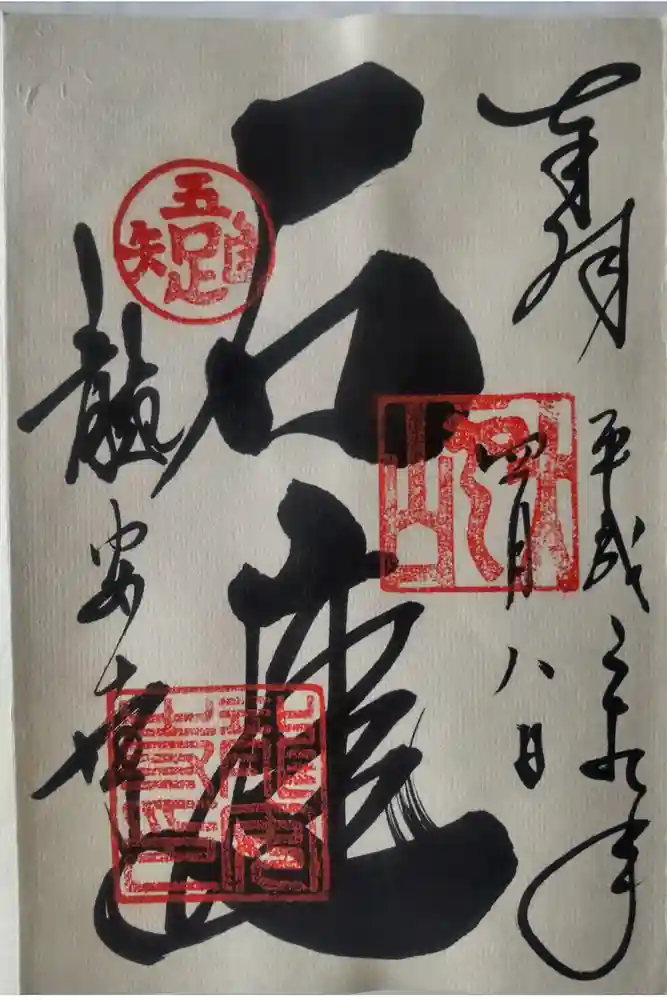 奉拝
平成二十九年
四月八日
大雲山
石庭
吾唯足知
龍安寺